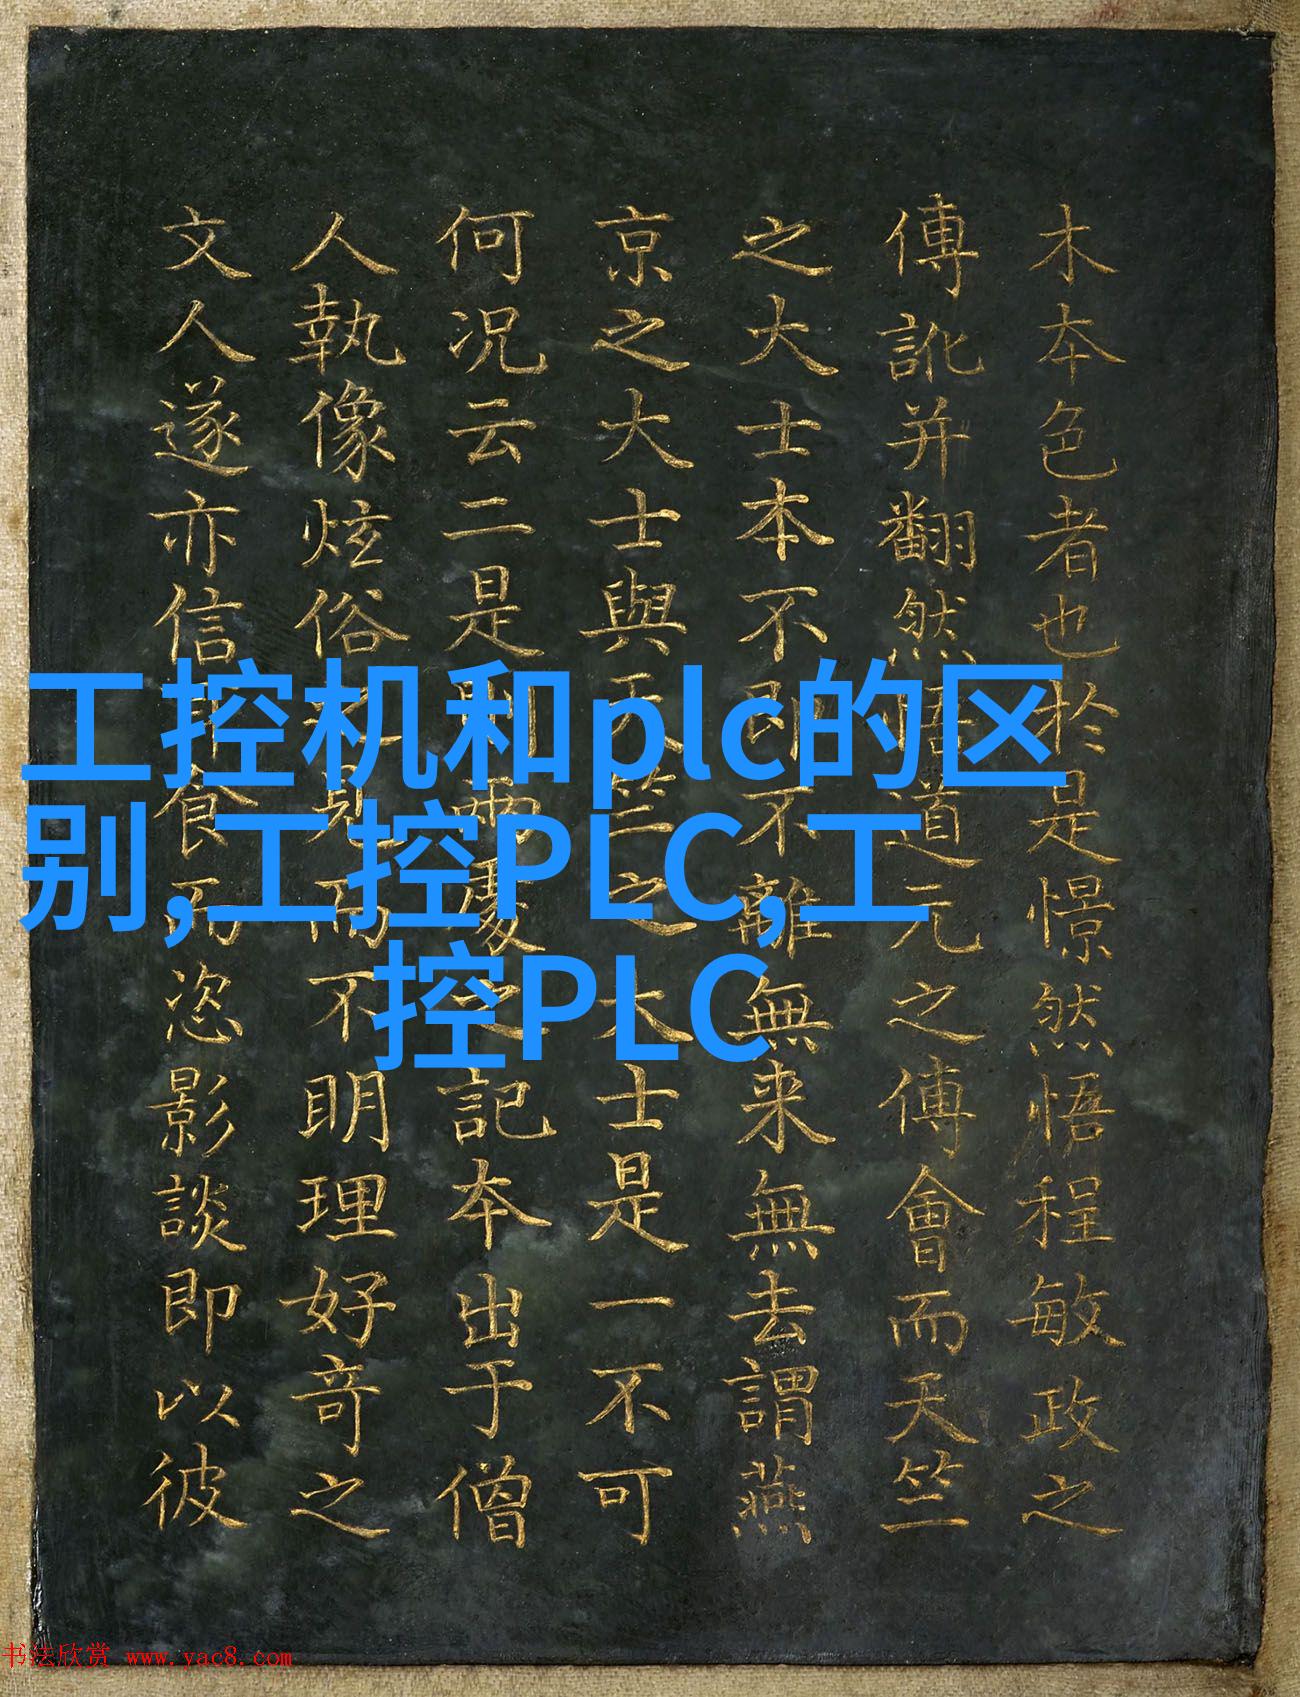 木本色者也於是憬然悟程敏政之
傳訛并翻然悟道元之傅會而天竺
之大士本不即不離無来無去謂燕
京之大士與天竺之大士是一不可
何况云二是則兩處之記本出于僧
人執像炫俗之見而不明理好奇之
文人遂亦信耳食而恣影談即以彼
工控机和plc的区
别,工控PLC,工
控PLC
书法欣赏 www.yac8.com